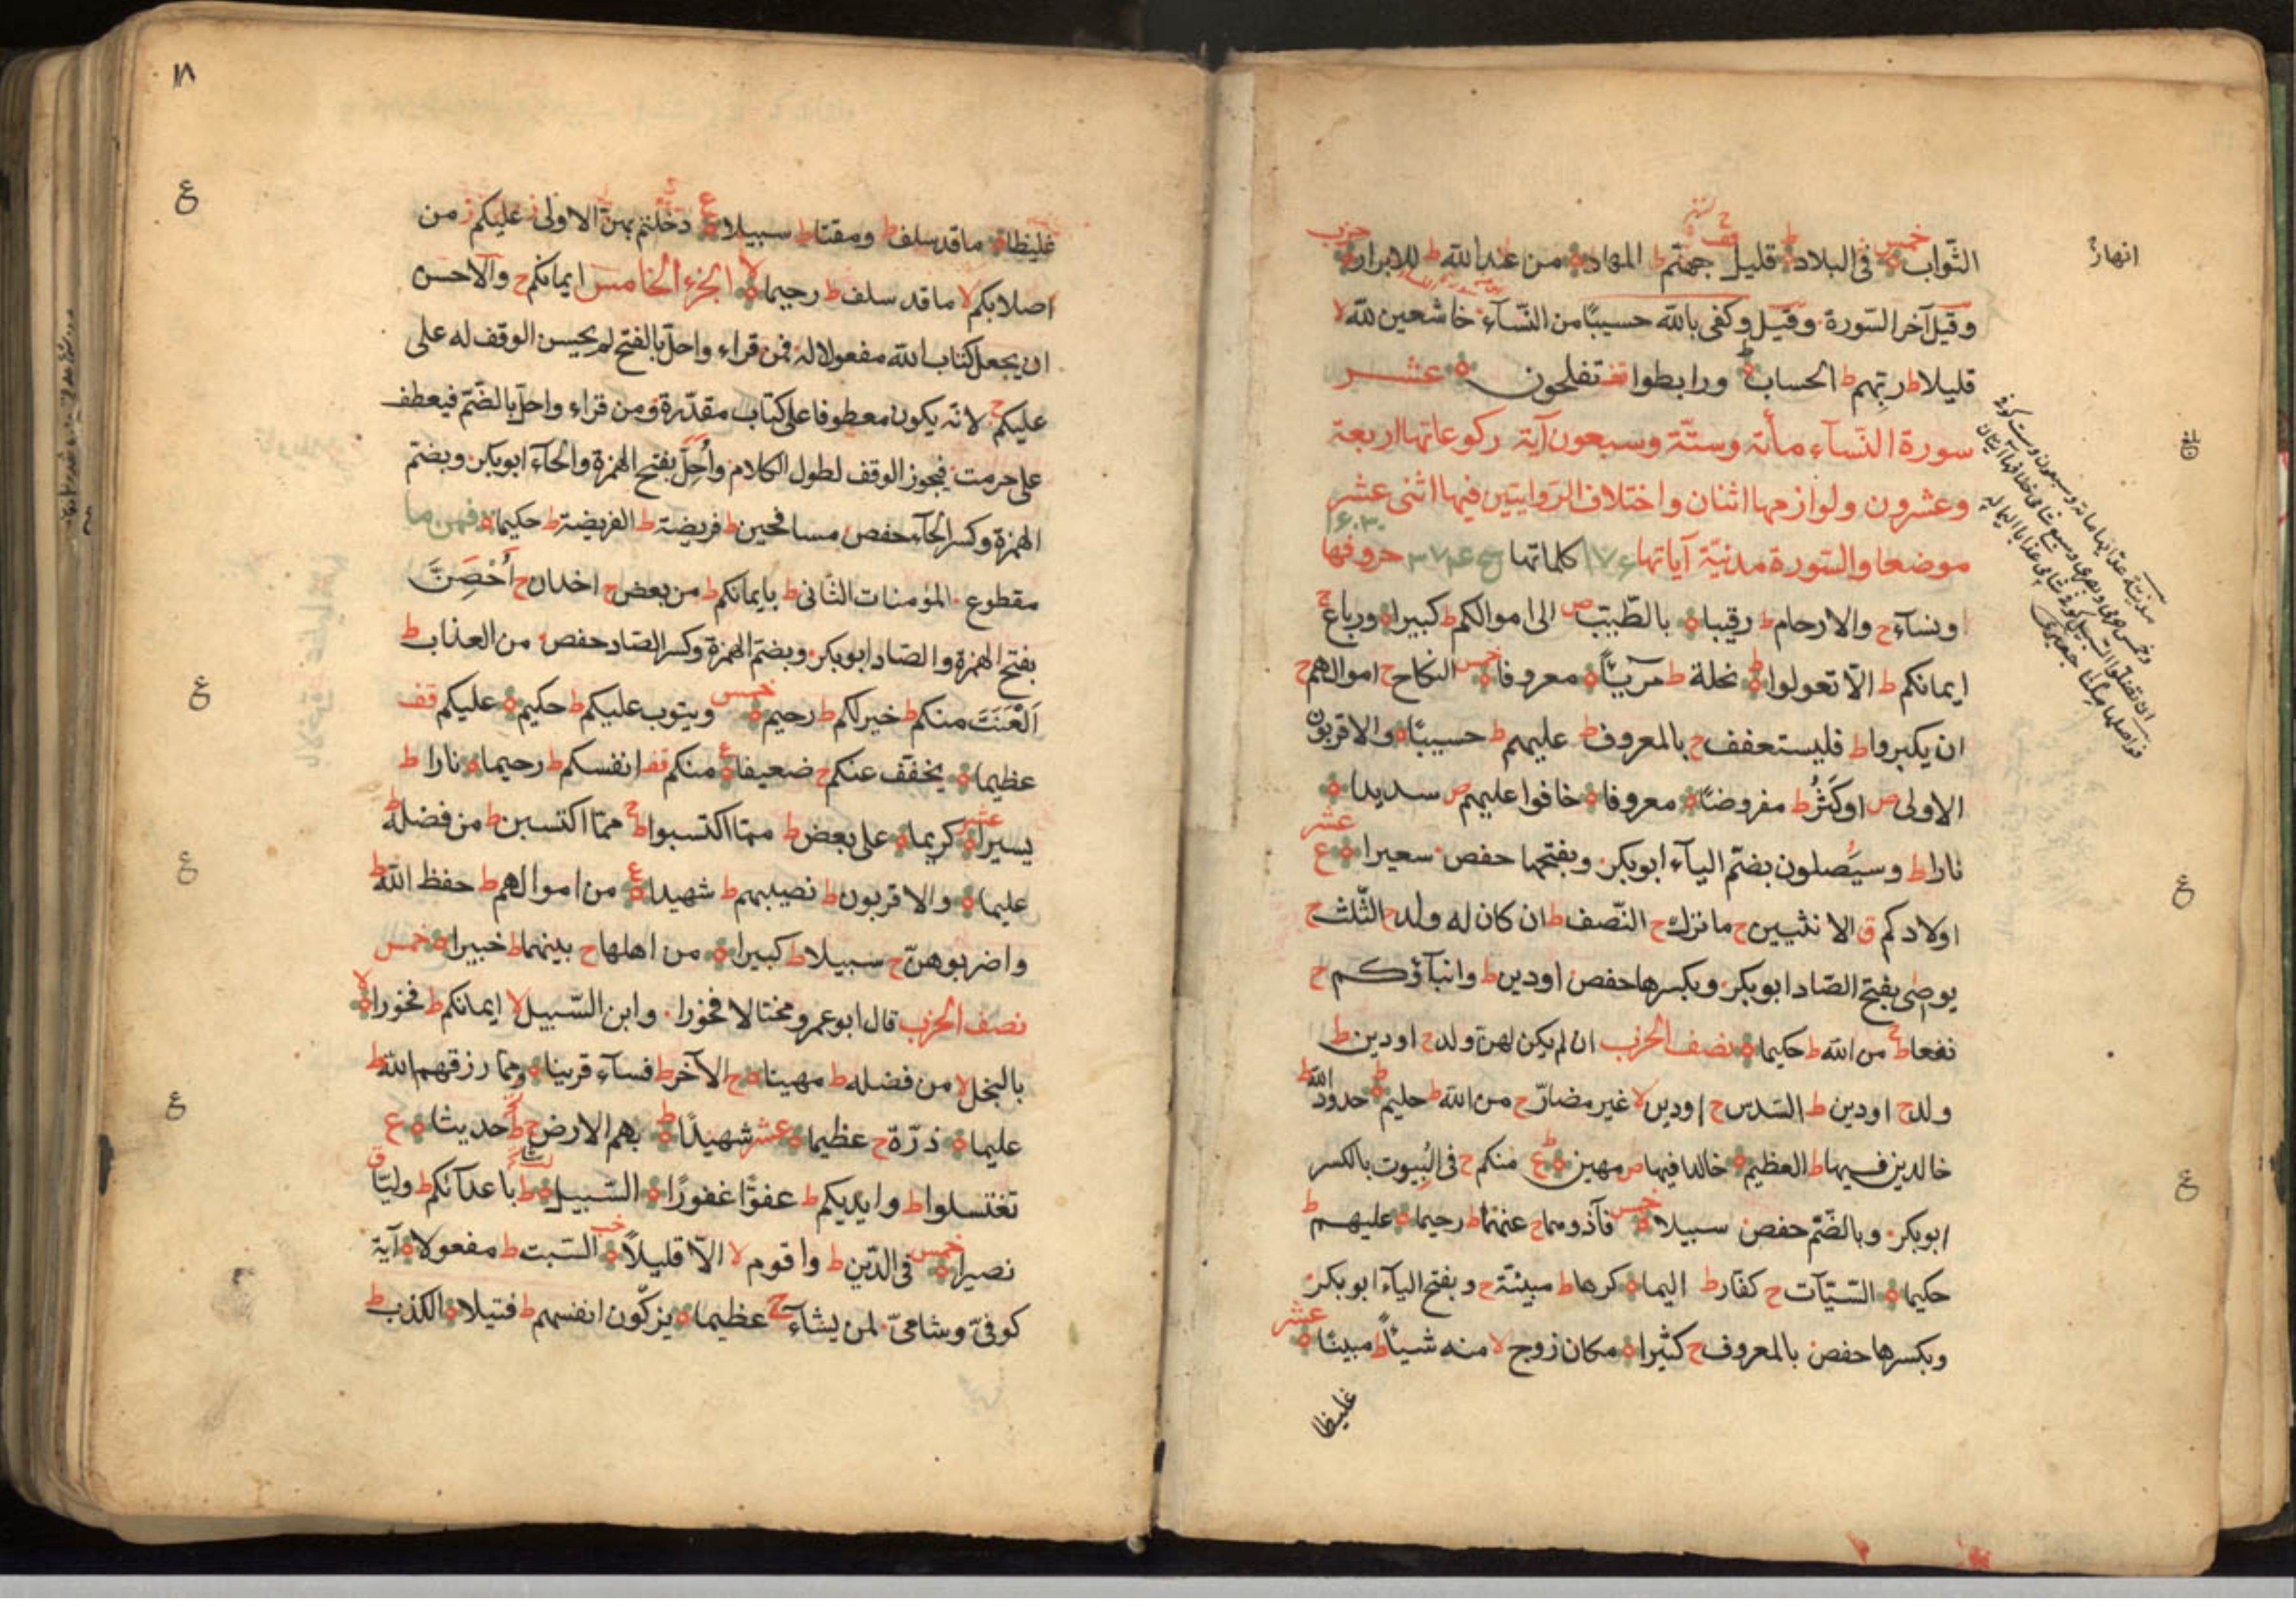 الثواب ه خمس في البلاد ط قليل قف جهنم ط المهاد ه من عند الله ط للابرار ه حزب
انهار
وقيل آخر السورة وقيل وكفى بالله حسيبا من النسآء خاشعين لله لا
قليلا ط ربهم ط الحساب ه ورابطوا قف تفلحون ه عشر
سورة النسآء مأئة وستة وسبعون آية ركوعاتها اربعة
وعشرون ولوازمها اثنان واختلاف الروايتين فيها اثنى عشر
موضعا والسورة مدنية آياتها ١٧۶ كلماتها حروفها
١۶٠٣٠
ونسآء ج والارحام ط رقيبا ه بالطيب ص الى اموالكم ط كبيرا ه ورباع ج
ايمانكم ط الا تعولوا ه نحلة ط مريئا ه معروفا ه خمس النكاح ج اموالهم ج
ان يكبروا ط فليستعفف ج بالمعروف ط عليهم ط حسيبا ه والاقربون
الاولى ص او كثر ط مفروضا ه معروفا ه خافوا عليهم ص سديدا ه
نارا ط وسيصلون بضم اليآء ابوبكر وبفتحها حفص سعيرا ه ع عشر
اولادكم ق الانثيين ج ما ترك ج النصف ط ان كان له ولد ج الثلث ج
يوصى بفتح الصاد ابوبكر وبكسرها حفص او دين ط وابنآؤكم ج
نفعا ط من الله ط حكيما ه نصف الحزب ان لم يكن لهن ولد ج او دين ط
ولد ج او دين ط السدس ج او دين لا غير مضار ج من الله ط حليم ه حدود الله ط
خالدين فيها ط العظيم ه خالدا فيها ص مهين ه ع منكم ج في البيوت بالكسر
ابوبكر وبالضم حفص سبيلا ه خمس فآذوهما ج عنهما ط رحيما ه عليهم ط
حكيما ه السيئات ج كفار ط اليما ه كرها ط مبينة ج وبفتح اليآء ابوبكر
وبكسرها حفص بالمعروف ج كثيرا ه مكان زوج لا منه شيئا ط مبينا ه عشر
غليظا
١٨
غليظا ه ما قد سلف ط ومقتا ط سبيلا ه ع دخلتم بهن الاولى ز عليكم ز من
اصلابكم لا ما قد سلف ط رحيما ه لا الجزء الخامس ايمانكم ج والاحسن
ان يجعل كتاب الله مفعولا له فمن قراء واحل بالفتح لم يحسن الوقف له على
عليكم ج لانه يكون معطوفا على كتاب مقدرة ومن قراء واحل بالضم فيعطف
على حرمت فيجوز الوقف لطول الكلام وأحل بفتح الهمزة والحآء ابوبكر وبضم
الهمزة وكسر الحآء حفص مسافحين ط فريضة ط الفريضة ط حكيما ه فمن ما
مقطوع المؤمنات الثانى ط بايمانكم ط من بعض ج اخدان ج أحصن
بفتح الهمزة والصاد ابوبكر وبضم الهمزة وكسر الصاد حفص من العذاب ط
العنت منكم ط خير لكم ط رحيم ه خمس ويتوب عليكم ط حكيم ه عليكم قف
عظيما ه يخفف عنكم ج ضعيفا ه ع منكم قف انفسكم ط رحيما ه نارا ط
يسيرا ه عشر كريما ه على بعض ط مما اكتسبوا ط مما اكتسبن ط من فضله ط
عليما ه والاقربون ط نصيبهم ط شهيدا ه ع من اموالهم ط حفظ الله ط
واضربوهن ج سبيلا ط كبيرا ه من اهلها ج بينهما ط خبيرا ه خمس
نصف الحزب قال ابو عمرو مختالا فخورا وابن السبيل لا ايمانكم ط فخورا ه لا
بالبخل لا من فضله ط مهينا ه ج الآخر ط فسآء قرينا ه ومما رزقهم الله ط
عليما ه ذرة ج عظيما ه عشر شهيدا ه ط بهم الارض ط حديثا ه ع
تغتسلوا ط وايديكم ط عفوا غفورا ه السبيل ه ط باعدآئكم ط وليا ق
نصيرا ه خمس في الدين ط واقوم لا الا قليلا ه السبت ط مفعولا ه آية
كوفى وشامى لمن يشآء ج عظيما ه يزكون انفسهم ط فتيلا ه الكذب ط